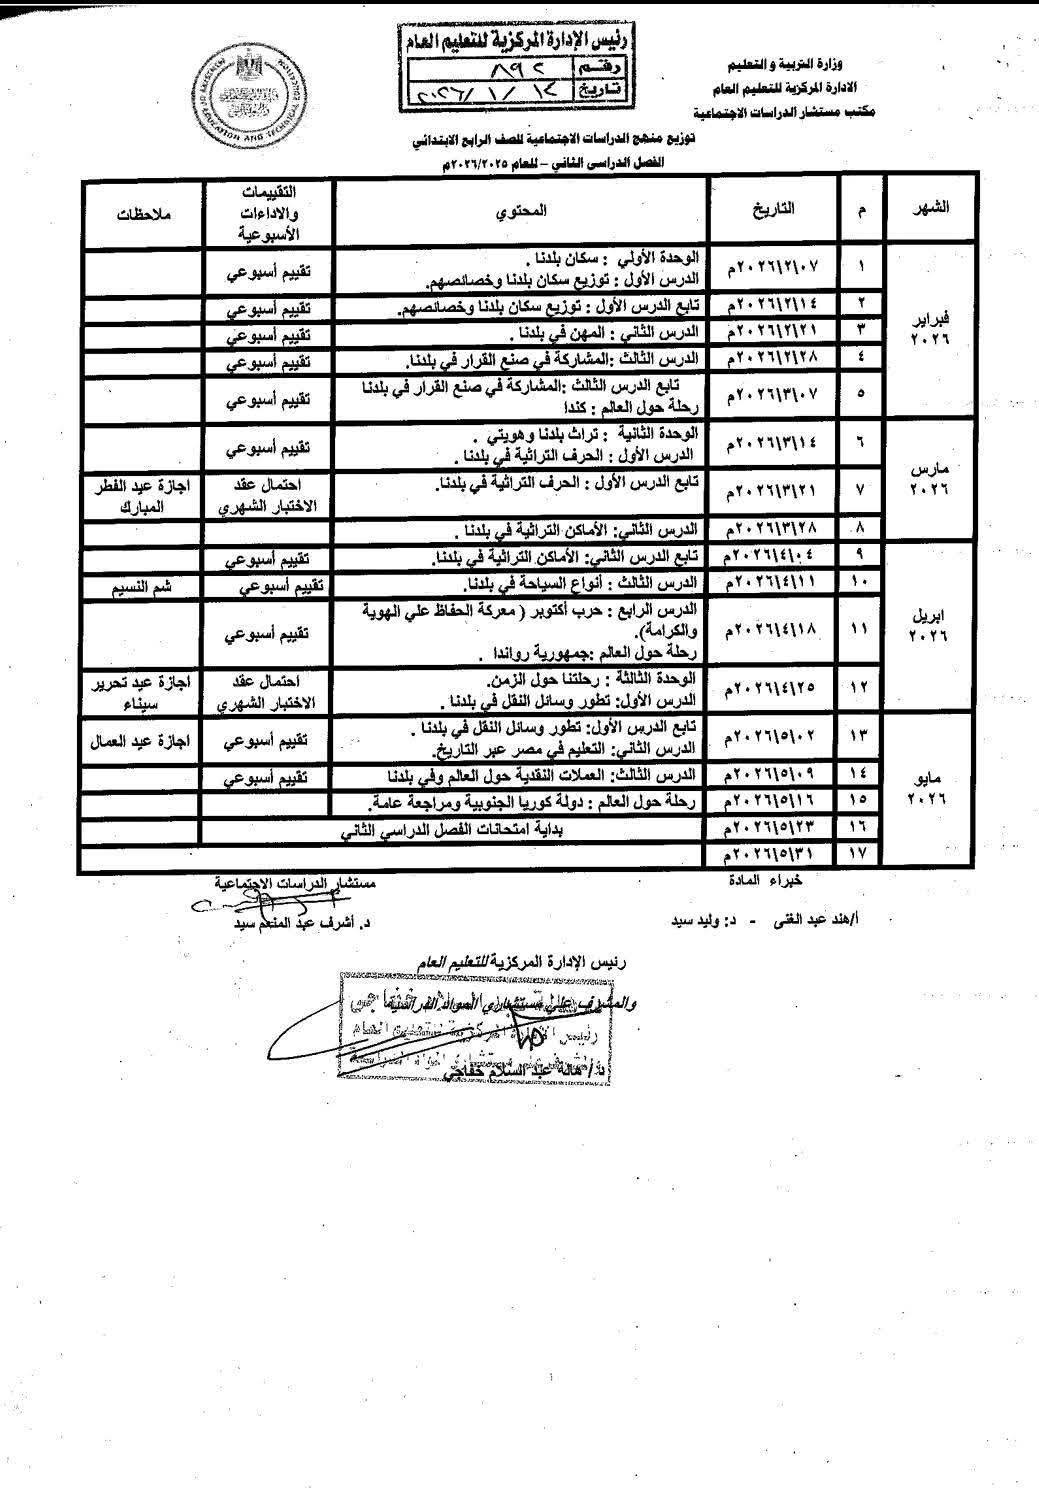 رئيس الإدارة المركزية للتعليم العام
رقم ٨٩٢
تاريخ ١٤ / ١ / ٢٠٢٦
وزارة التربية و التعليم
الادارة المركزية للتعليم العام
مكتب مستشار الدراسات الاجتماعية
توزيع منهج الدراسات الاجتماعية للصف الرابع الابتدائي
الفصل الدراسي الثاني – للعام ٢٠٢٦/٢٠٢٥م
الشهر م التاريخ المحتوي التقييمات والاداءات الأسبوعية ملاحظات
فبراير ٢٠٢٦
١ ٢٠٢٦\٢\٠٧م الوحدة الأولي : سكان بلدنا . تقييم أسبوعي
الدرس الأول : توزيع سكان بلدنا وخصائصهم.
٢ ٢٠٢٦\٢\١٤م تابع الدرس الأول : توزيع سكان بلدنا وخصائصهم. تقييم أسبوعي
٣ ٢٠٢٦\٢\٢١م الدرس الثاني : المهن في بلدنا . تقييم أسبوعي
٤ ٢٠٢٦\٢\٢٨م الدرس الثالث :المشاركة في صنع القرار في بلدنا. تقييم أسبوعي
٥ ٢٠٢٦\٣\٠٧م تابع الدرس الثالث :المشاركة في صنع القرار في بلدنا تقييم أسبوعي
رحلة حول العالم : كندا
مارس ٢٠٢٦
٦ ٢٠٢٦\٣\١٤م الوحدة الثانية : تراث بلدنا وهويتي . تقييم أسبوعي
الدرس الأول : الحرف التراثية في بلدنا .
٧ ٢٠٢٦\٣\٢١م تابع الدرس الأول : الحرف التراثية في بلدنا. احتمال عقد الاختبار الشهري اجازة عيد الفطر المبارك
٨ ٢٠٢٦\٣\٢٨م الدرس الثاني: الأماكن التراثية في بلدنا .
ابريل ٢٠٢٦
٩ ٢٠٢٦\٤\٠٤م تابع الدرس الثاني: الأماكن التراثية في بلدنا. تقييم أسبوعي
١٠ ٢٠٢٦\٤\١١م الدرس الثالث : أنواع السياحة في بلدنا. تقييم أسبوعي شم النسيم
١١ ٢٠٢٦\٤\١٨م الدرس الرابع : حرب أكتوبر ( معركة الحفاظ علي الهوية تقييم أسبوعي
والكرامة).
رحلة حول العالم :جمهورية رواندا .
١٢ ٢٠٢٦\٤\٢٥م الوحدة الثالثة : رحلتنا حول الزمن. احتمال عقد الاختبار الشهري اجازة عيد تحرير سيناء
الدرس الأول: تطور وسائل النقل في بلدنا .
مايو ٢٠٢٦
١٣ ٢٠٢٦\٥\٠٢م تابع الدرس الأول: تطور وسائل النقل في بلدنا . تقييم أسبوعي اجازة عيد العمال
الدرس الثاني: التعليم في مصر عبر التاريخ.
١٤ ٢٠٢٦\٥\٠٩م الدرس الثالث: العملات النقدية حول العالم وفي بلدنا تقييم أسبوعي
١٥ ٢٠٢٦\٥\١٦م رحلة حول العالم : دولة كوريا الجنوبية ومراجعة عامة.
١٦ ٢٠٢٦\٥\٢٣م بداية امتحانات الفصل الدراسي الثاني
١٧ ٢٠٢٦\٥\٣١م
خبراء المادة
مستشار الدراسات الاجتماعية
أ/هند عبد الغنى - د: وليد سيد
د. أشرف عبد المنعم سيد
رئيس الإدارة المركزية للتعليم العام
والمشرف علي مستشاري المواد الدراسية
د / هالة عبد السلام خفاجي